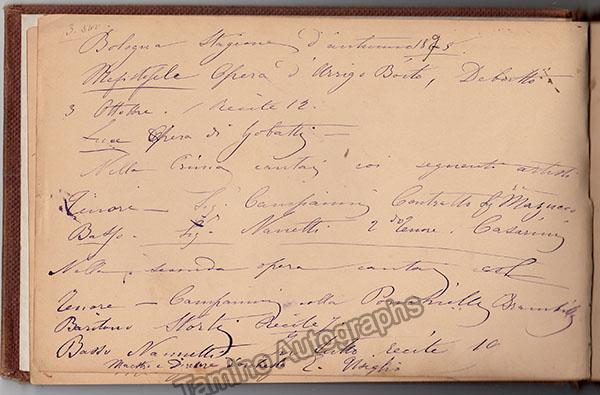 Bologna Stagione d'autunno 1875.
Mefistofele Opera d'Arrigo Boito, Debutto
3 Ottobre. / Recite 12.
Luce Opera di Gobatti —
Nella Prima cantai coi seguenti artisti
Tenore — Sig. Campanini Contralto Mazzucco
Basso — Sig. Nannetti 2do Tenore. Casarini
Nella seconda opera cantai col
Tenore — Campanini colla Ponchielli Brambilla
Baritono Storti Recite
Basso Nannetti Tutto recite
Maestro e Direttore d'orchestra L.
Tamino Autographs